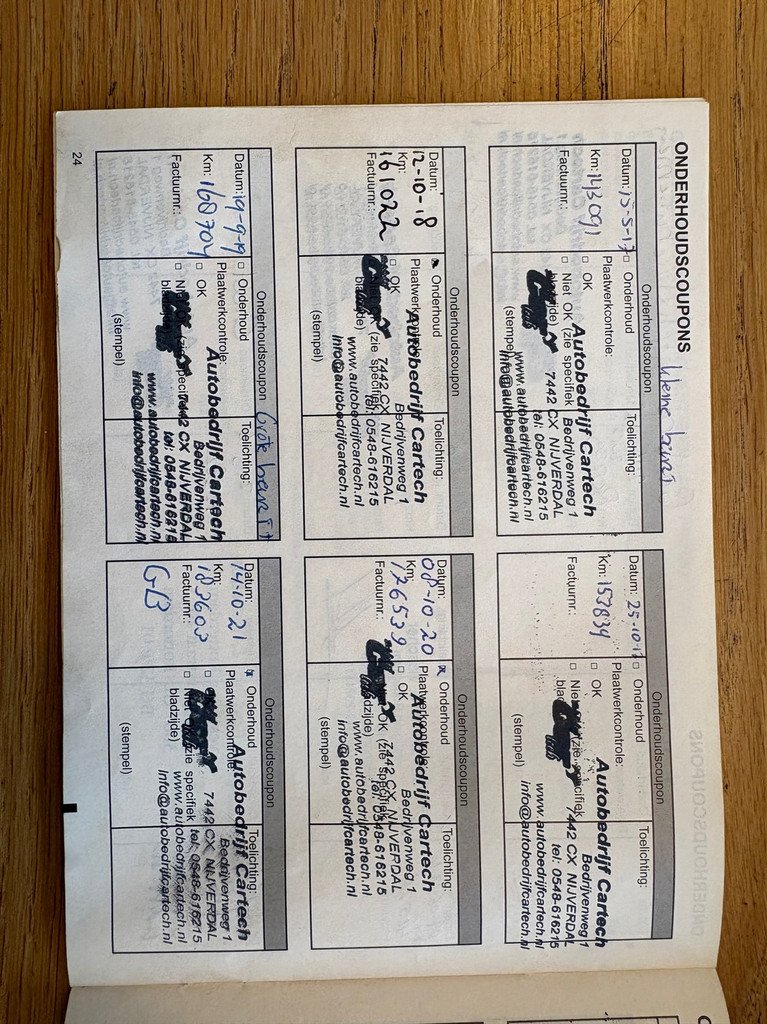 ONDERHOUDSCOUPONS
Kleine beurt
Onderhoudscoupon
Datum: 15-5-17
Km: 143091
Factuurnr.:
□ Onderhoud
Plaatwerkcontrole:
□ OK
□ Niet OK (zie specifiek
bladzijde)
(stempel)
Toelichting:
Autobedrijf Cartech
Bedrijvenweg 1
7442 CX NIJVERDAL
tel: 0548-616215
www.autobedrijfcartech.nl
info@autobedrijfcartech.nl
Onderhoudscoupon
Datum: 25-10-17
Km: 153839
Factuurnr.:
□ Onderhoud
Plaatwerkcontrole:
□ OK
□ Niet (zie specifiek
(stempel)
Toelichting:
Autobedrijf Cartech
Bedrijvenweg 1
7442 CX NIJVERDAL
tel: 0548-616215
www.autobedrijfcartech.nl
info@autobedrijfcartech.nl
Onderhoudscoupon
Datum:
12-10-18
Km:
161022
Factuurnr.:
Onderhoud
□ OK
(zie specifiek
bladzijde)
(stempel)
Toelichting:
Autobedrijf Cartech
Bedrijvenweg 1
7442 CX NIJVERDAL
tel: 0548-616215
www.autobedrijfcartech.nl
info@autobedrijfcartech.nl
Onderhoudscoupon
Datum:
08-10-20
Km:
176539
Factuurnr.:
Onderhoud
Plaatwerkcontrole:
□ OK
OK (zie specifiek
bladzijde)
(stempel)
Toelichting:
Autobedrijf Cartech
Bedrijvenweg 1
7442 CX NIJVERDAL
tel: 0548-616215
www.autobedrijfcartech.nl
info@autobedrijfcartech.nl
Onderhoudscoupon
Grote beurt
Datum: 19-9-19
Km: 168704
Factuurnr.:
□ Onderhoud
Plaatwerkcontrole:
□ OK
(stempel)
Toelichting:
Autobedrijf Cartech
Bedrijvenweg 1
7442 CX NIJVERDAL
tel: 0548-616215
www.autobedrijfcartech.nl
info@autobedrijfcartech.nl
Onderhoudscoupon
Datum:
14-10-21
Km:
183603
Factuurnr.:
GB
Onderhoud
Plaatwerkcontrole:
zie specifiek
bladzijde)
(stempel)
Toelichting:
Autobedrijf Cartech
Bedrijvenweg 1
7442 CX NIJVERDAL
tel: 0548-616215
www.autobedrijfcartech.nl
info@autobedrijfcartech.nl
24